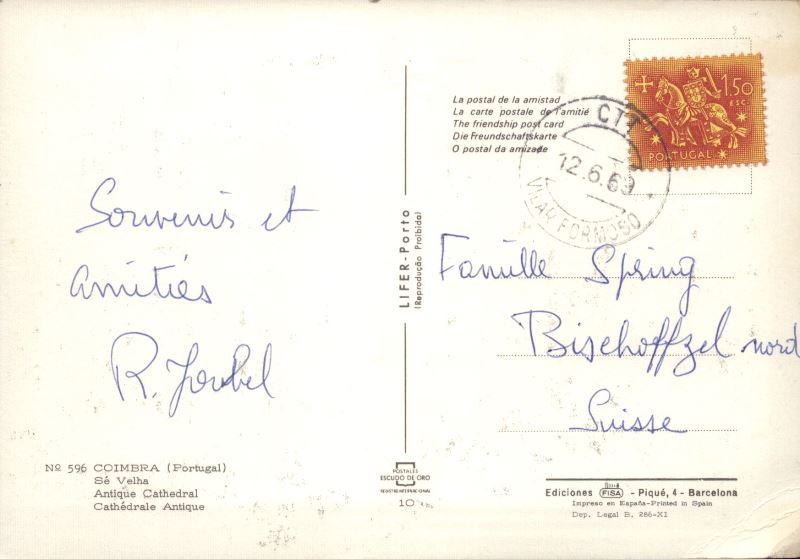 La postal de la amistad
La carte postale de l'amitié
The friendship post card
Die Freundschaftskarte
O postal da amizade
CTT
12.6.69
VILAR FORMOSO
1$50
ESC.
PORTUGAL
Souvenirs et
Amitiés
LIFER-Porto
(Reprodução Proibida)
Famille Spring
Bischoffzel nord
Suisse
Nº 596 COIMBRA (Portugal)
Sé Velha
Antique Cathedral
Cathédrale Antique
POSTALES
ESCUDO DE ORO
REGISTRO INTERNACIONAL
10
Ediciones FISA - Piqué, 4 - Barcelona
Impreso en España-Printed in Spain
Dep. Legal B. 286-XI